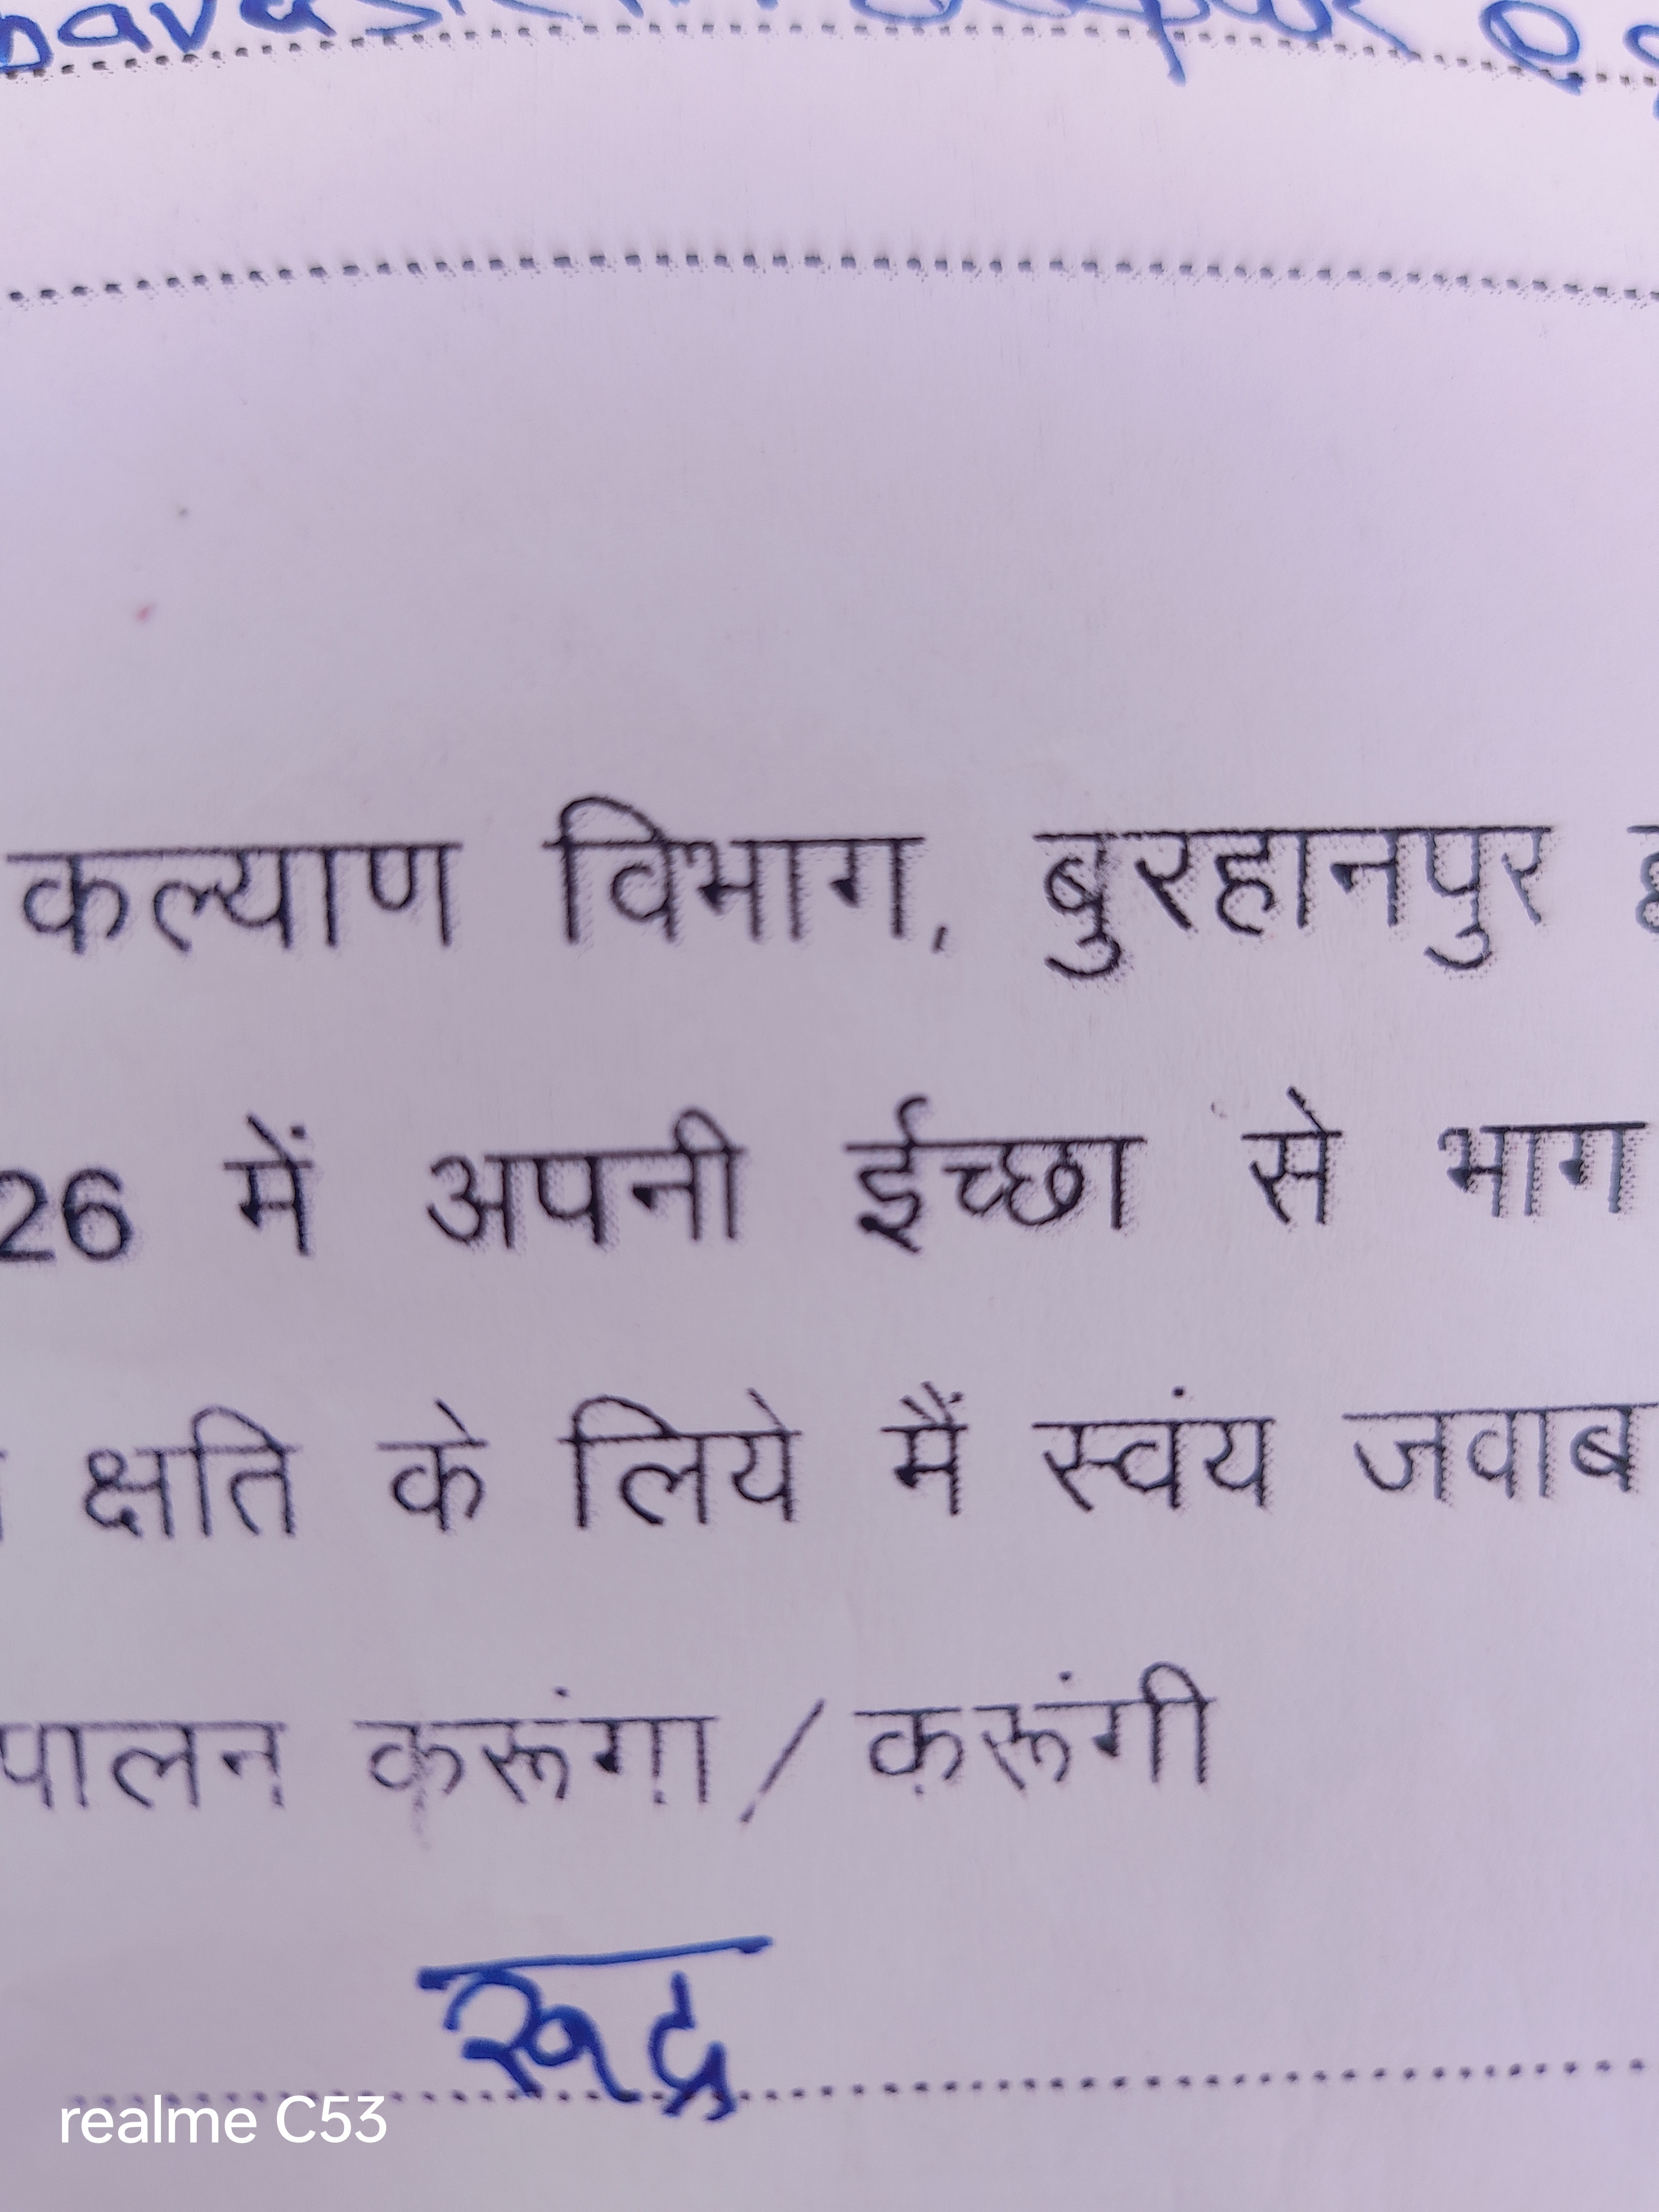 कल्याण विभाग, बुरहानपुर
26 में अपनी ईच्छा से भाग
क्षति के लिये मैं स्वंय जवाब
पालन करूंगा / करूंगी
रूद्र
realme C53